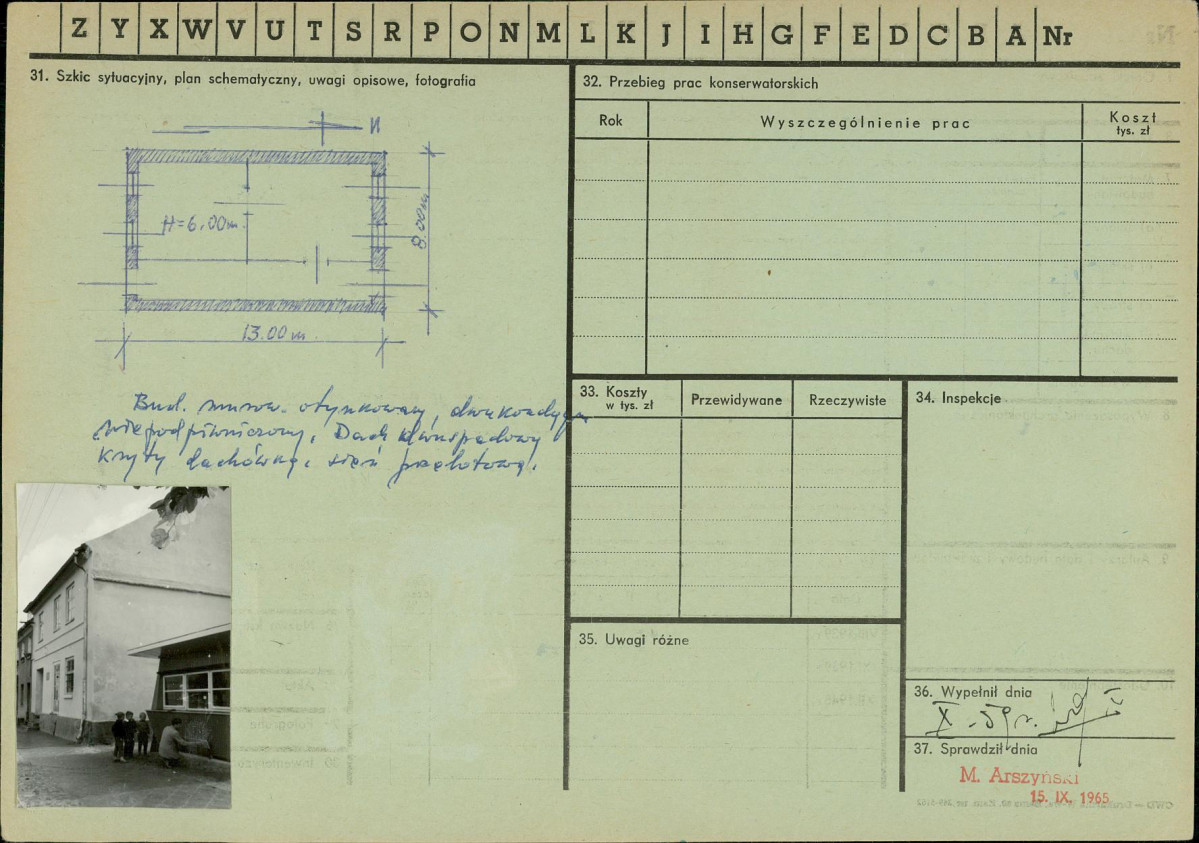 Z Y X W V U T S R P O N M L K J I H G F E D C B A Nr
31. Szkic sytuacyjny, plan schematyczny, uwagi opisowe, fotografia
N
H=6.00m.
8.00m
13.00m
Bud. murow. otynkowany, dwukondygn
niepodpiwniczony. Dach dwuspadowy
kryty dachówką. sień przelotowa.
32. Przebieg prac konserwatorskich
Rok
Wyszczególnienie prac
Koszt
tys. zł
33. Koszty
w tys. zł
Przewidywane
Rzeczywiste
34. Inspekcje
35. Uwagi różne
36. Wypełnił dnia
X. 59 r.
37. Sprawdził dnia
M. Arszyński
15. IX. 1965